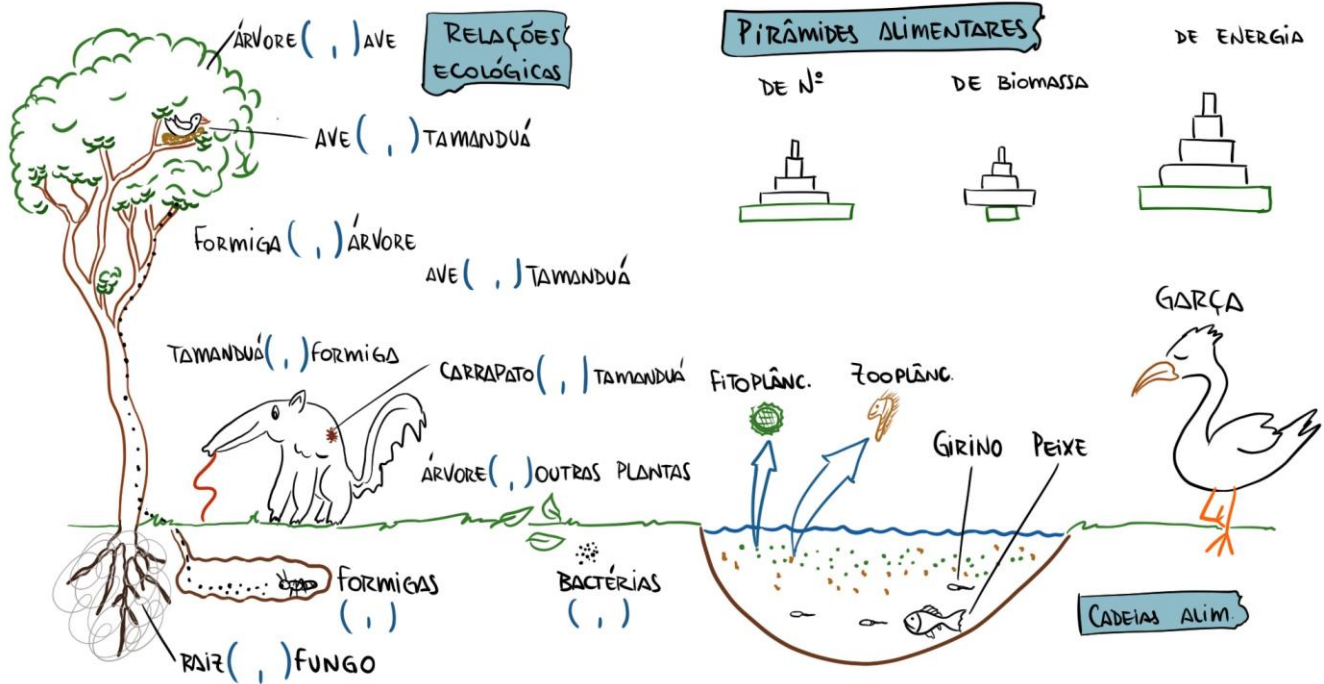 RELAÇÕES
ECOLÓGICAS
ÁRVORE ( , ) AVE
AVE ( , ) TAMANDUÁ
FORMIGA ( , ) ÁRVORE
AVE ( , ) TAMANDUÁ
TAMANDUÁ ( , ) FORMIGA
CARRAPATO ( , ) TAMANDUÁ
ÁRVORE ( , ) OUTRAS PLANTAS
FORMIGAS
( , )
BACTÉRIAS
( , )
RAIZ ( , ) FUNGO
PIRÂMIDES ALIMENTARES
DE Nº
DE BIOMASSA
DE ENERGIA
FITOPLÂNC.
ZOOPLÂNC.
GIRINO
PEIXE
GARÇA
CADEIAS ALIM.